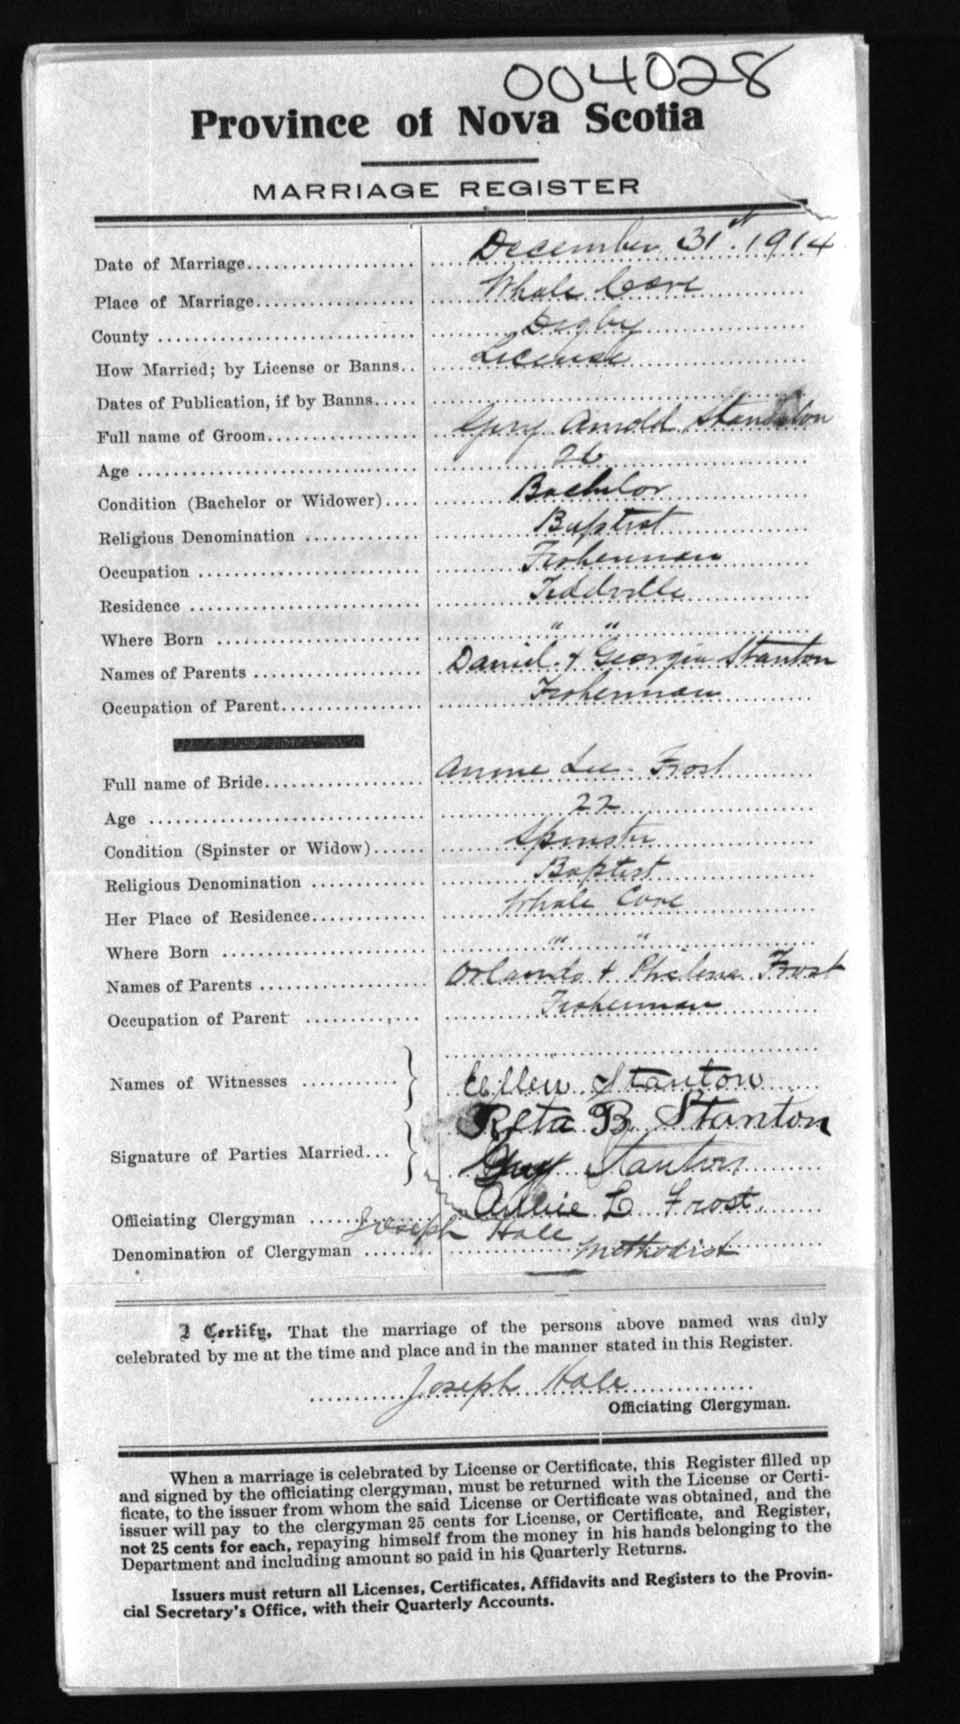 004028
Province of Nova Scotia
MARRIAGE REGISTER
Date of Marriage.................... December 31st 1914
Place of Marriage.................. Whale Cove
County ............................. Digby
How Married; by License or Banns.. License
Dates of Publication, if by Banns.....
Full name of Groom.................. Arnold
Age ............................... 26
Condition (Bachelor or Widower).... Bachelor
Religious Denomination ............ Baptist
Occupation ........................ Fisherman
Residence ......................... Tiddville
Where Born ...................... " "
Names of Parents .................. Daniel & Georgia Stanton
Occupation of Parent............... Fisherman
Full name of Bride................. Annie Lee Frost
Age ............................... 22
Condition (Spinster or Widow)...... Spinster
Religious Denomination ............ Baptist
Her Place of Residence............. Whale Cove
Where Born ........................ " "
Names of Parents .................. Orlando & Phelena Frost
Occupation of Parent .............. Fisherman
Names of Witnesses ........... } Ellen Stanton
Reta B. Stanton
Signature of Parties Married... } Guy Stanton
Annie L Frost.
Officiating Clergyman ...... Joseph Hale
Denomination of Clergyman ....... Methodist
I Certify, That the marriage of the persons above named was duly
celebrated by me at the time and place and in the manner stated in this Register.
Joseph Hale
Officiating Clergyman.
When a marriage is celebrated by License or Certificate, this Register filled up
and signed by the officiating clergyman, must be returned with the License or Certi-
ficate, to the issuer from whom the said License or Certificate was obtained, and the
issuer will pay to the clergyman 25 cents for License, or Certificate, and Register,
not 25 cents for each, repaying himself from the money in his hands belonging to the
Department and including amount so paid in his Quarterly Returns.
Issuers must return all Licenses, Certificates, Affidavits and Registers to the Provin-
cial Secretary's Office, with their Quarterly Accounts.